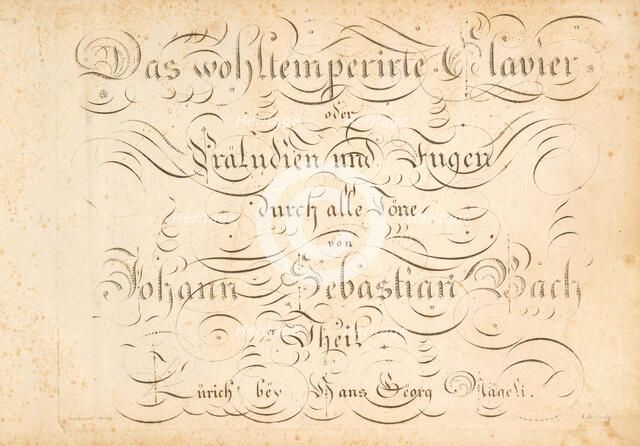 Das wohltemperirte Clavier
oder
Präludien und Fugen
durch alle Töne
von
Johann Sebastian Bach
er Theil
Zürich bey Hans Georg Nägeli.